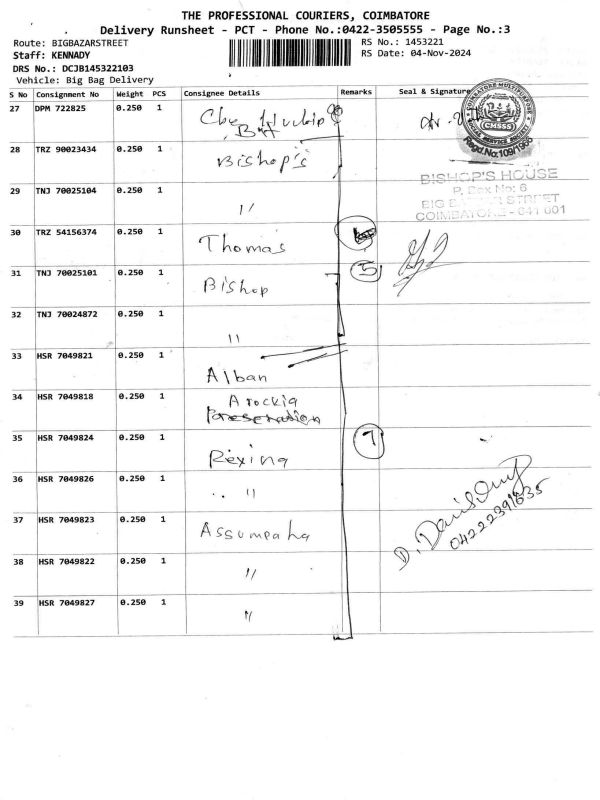 THE PROFESSIONAL COURIERS, COIMBATORE
Delivery Runsheet - PCT - Phone No.:0422-3505555 - Page No.:3
Route: BIGBAZARSTREET
RS No.: 1453221
Staff: KENNADY
RS Date: 04-Nov-2024
DRS No.: DCJB145322103
Vehicle: Big Bag Delivery
S No Consignment No Weight PCS Consignee Details Remarks Seal & Signature
27 DPM 722825 0.250 1
28 TRZ 90023434 0.250 1 Bishop's
29 TNJ 70025104 0.250 1 "
30 TRZ 54156374 0.250 1 Thomas
31 TNJ 70025101 0.250 1 Bishop 5
32 TNJ 70024872 0.250 1 "
33 HSR 7049821 0.250 1 Alban
34 HSR 7049818 0.250 1 Arockia
35 HSR 7049824 0.250 1 Rexina 7
36 HSR 7049826 0.250 1 "
37 HSR 7049823 0.250 1
38 HSR 7049822 0.250 1 "
39 HSR 7049827 0.250 1 "
COIMBATORE MULTIPURPOSE
SOCIAL SERVICE SOCIETY
CMSSS
Regd.No:109/1986
BISHOP'S HOUSE
P. Box No: 6
BIG BAZAAR STREET
COIMBATORE - 641 001
04222391635